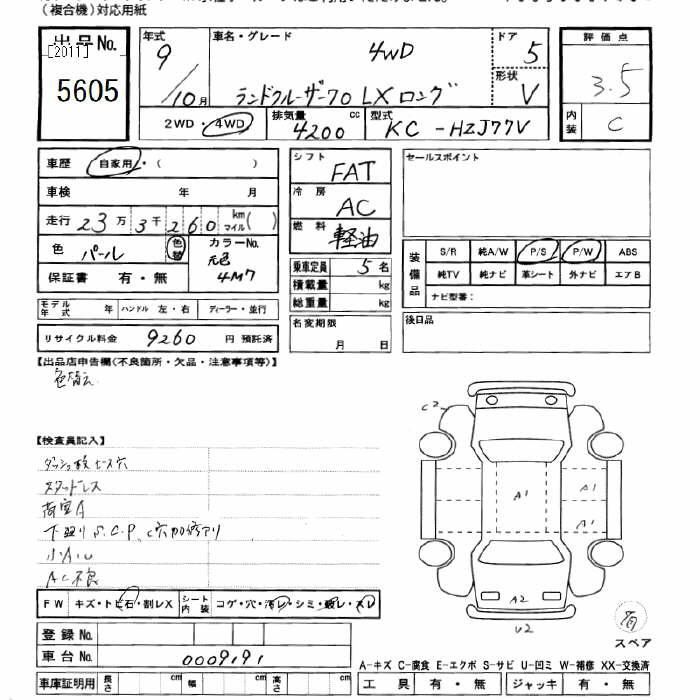 (複合機)対応用紙
出品No.
[2011]
5605
年式 9/10月
車名・グレード 4WD
ランドクルーザー70 LXロング
ドア 5
形状 V
2WD・4WD
排気量 4200 cc
型式 KC-HZJ77V
評価点 3.5
内装 C
車歴 自家用・( )
車検 年 月
走行 23万3千260 km マイル( )
色 パール 色替
カラーNo. 元色 4M7
保証書 有・無
モデル年式 年 ハンドル 左・右 ディーラー・並行
リサイクル料金 9260 円 預託済
シフト FAT
冷房 AC
燃料 軽油
乗車定員 5名
積載量 kg
総重量 kg
名変期限 月 日
セールスポイント
装備品
S/R 純A/W P/S P/W ABS
純TV 純ナビ 革シート 外ナビ エアB
ナビ型番:
後日品
【出品店申告欄(不良箇所・欠品・注意事項等)】
色替え
【検査員記入】
スタッドレス
荷室A
AC不良
FW キズ・トビ石・割レX
シート内装 コゲ・穴・汚レ・シミ・破レ・スレ
登録No.
車台No. 0009191
車庫証明用 長さ cm 幅 cm 高さ cm
C2
A1
A1
A1
A2
U2
有
スペア
A-キズ C-腐食 E-エクボ S-サビ U-凹ミ W-補修 XX-交換済
工具 有・無 ジャッキ 有・無